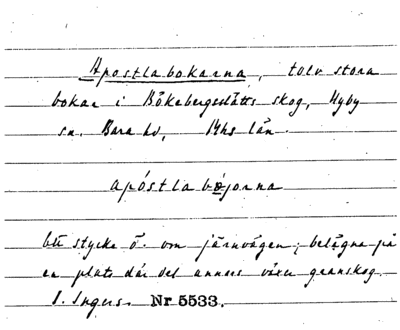 Apostlabokarna, tolv stora
bokar i Bökebergsslätts skog, Hyby
sn, Bara hd, Mhs län.
apóstla bǿjorna
Ett stycke ö. om järnvägen; belägna på
en plats där det annars växer granskog.
I. Ingers. Nr 5533.